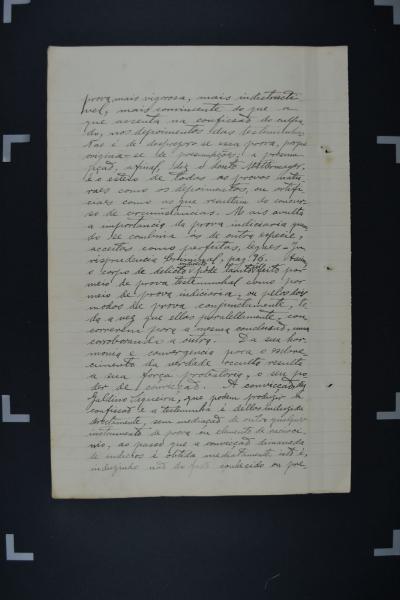 prova mais vigorosa, mais indestructi-
vel, mais convincente do que a
que assenta na confissão do culpa-
do, nos depoimentos das testemunhas.
Nas é de desprezo se essa prova, porque
origina-se de presumpções: a presum-
pção, afinal, diz o douto Mittermayer,
é o esteio de todas as provas, natu-
raes como os depoimentos, ou artifi-
ciaes como as que resultam do concur-
so de circumstancias. Mais avulta
a importancia da prova indiciaria quan-
do se combina as de outra especie,
acceitas como perfeitas, legaes - Ju-
risprudencia Criminal, pag. 76. Assim
o corpo de delicto pode tanto ser feito por
meio de prova testemunhal como por
meio de prova indiciaria, ou pelos dois
modos de prova conjunctamente, to-
da a vez que elles parallelamente, con-
correrem para a mesma conclusão, uma
corroborando a outra. Da sua har-
monia e convergencia para o esclare-
cimento da verdade occulta resulta
a sua força probatoria, o seu po-
der de convicção. A convicção, diz
Galdino Siqueira, que podem produzir a
confissão e a testemunha é dellas induzida
directamente, sem mediação de outro qualquer
instrumento de prova ou elemento de raciocí-
nio, ao passo que a convicção dimanada
de indicios é obtida mediatamente, isto é,
induzindo não do facto conhecido ou pre